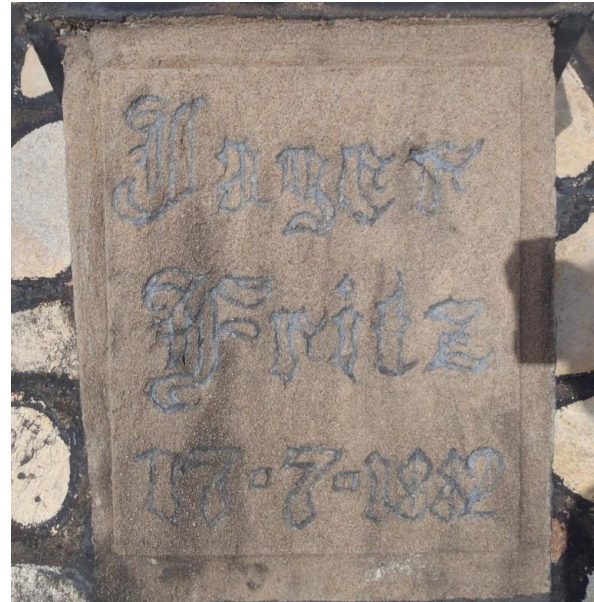 Jager
Fritz
17·7·1882